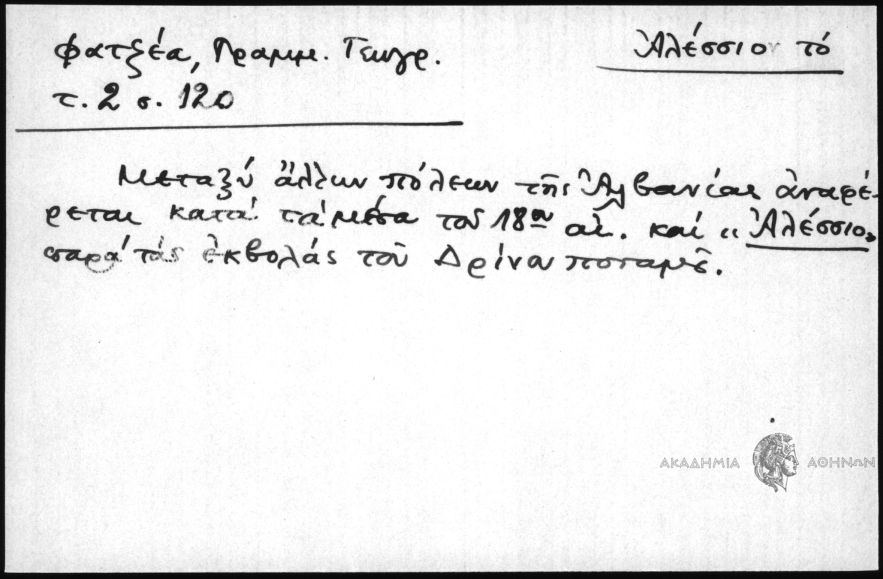 Φατζέα, Γραμμ. Γεωγρ.
τ. 2 σ. 120
Ἀλέσσιον τό
Μεταξύ ἄλλων πόλεων τῆς Ἀλβανίας ἀναφέ-
ρεται κατά τά μέσα τοῦ 18ου αἰ. καί "Ἀλέσσιο"
παρά τάς ἐκβολάς τοῦ Δρίνου ποταμοῦ.
ΑΚΑΔΗΜΙΑ ΑΘΗΝΩΝ